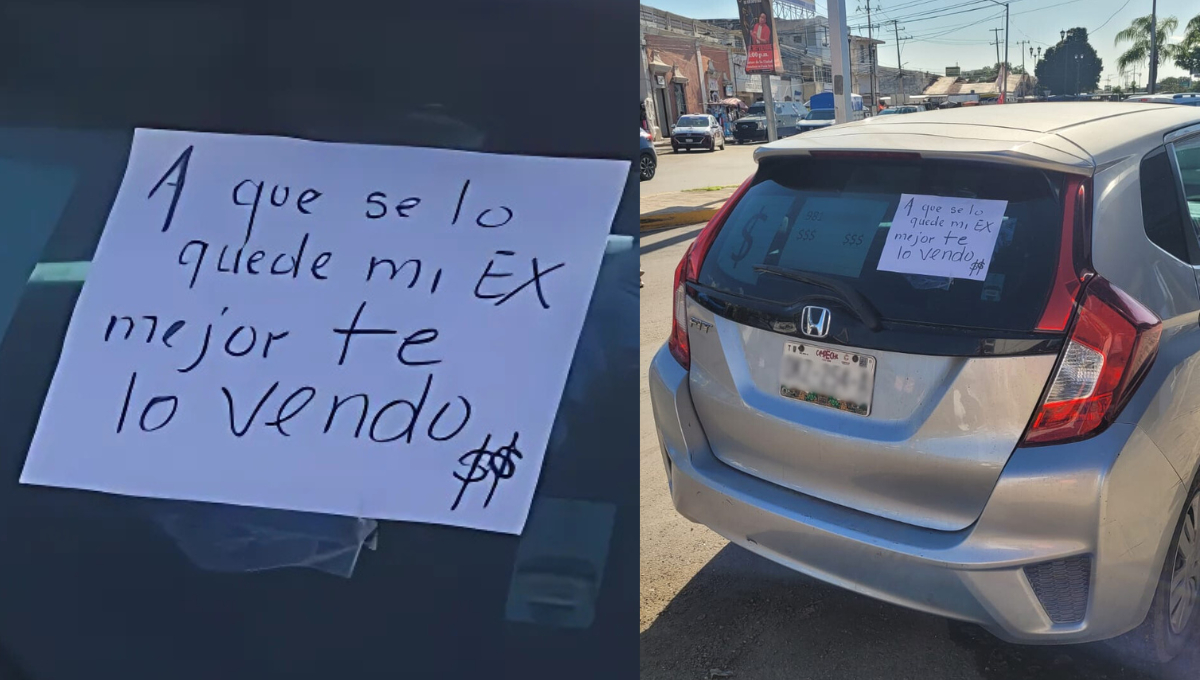 A que se lo
quede mi EX
mejor te
lo vendo
$$
$
$$$
$$$
A que se lo
quede mi EX
mejor te
lo vendo
$$
FIT